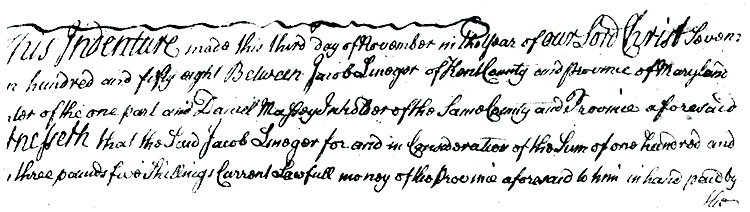 This Indenture made this third day of November in the year of our Lord Christ Seven=
n hundred and fifty eight Between Jacob Lineger of Kent County and province of Maryland
ter of the one part and Daniel Massey Inholder of the Same County and Province aforesaid
tnesseth that the Said Jacob Lineger for and in Consideration of the Sum of one hundred and
three pounds five Shillings Current Lawfull money of the Province aforesaid to him in hand paid by
the